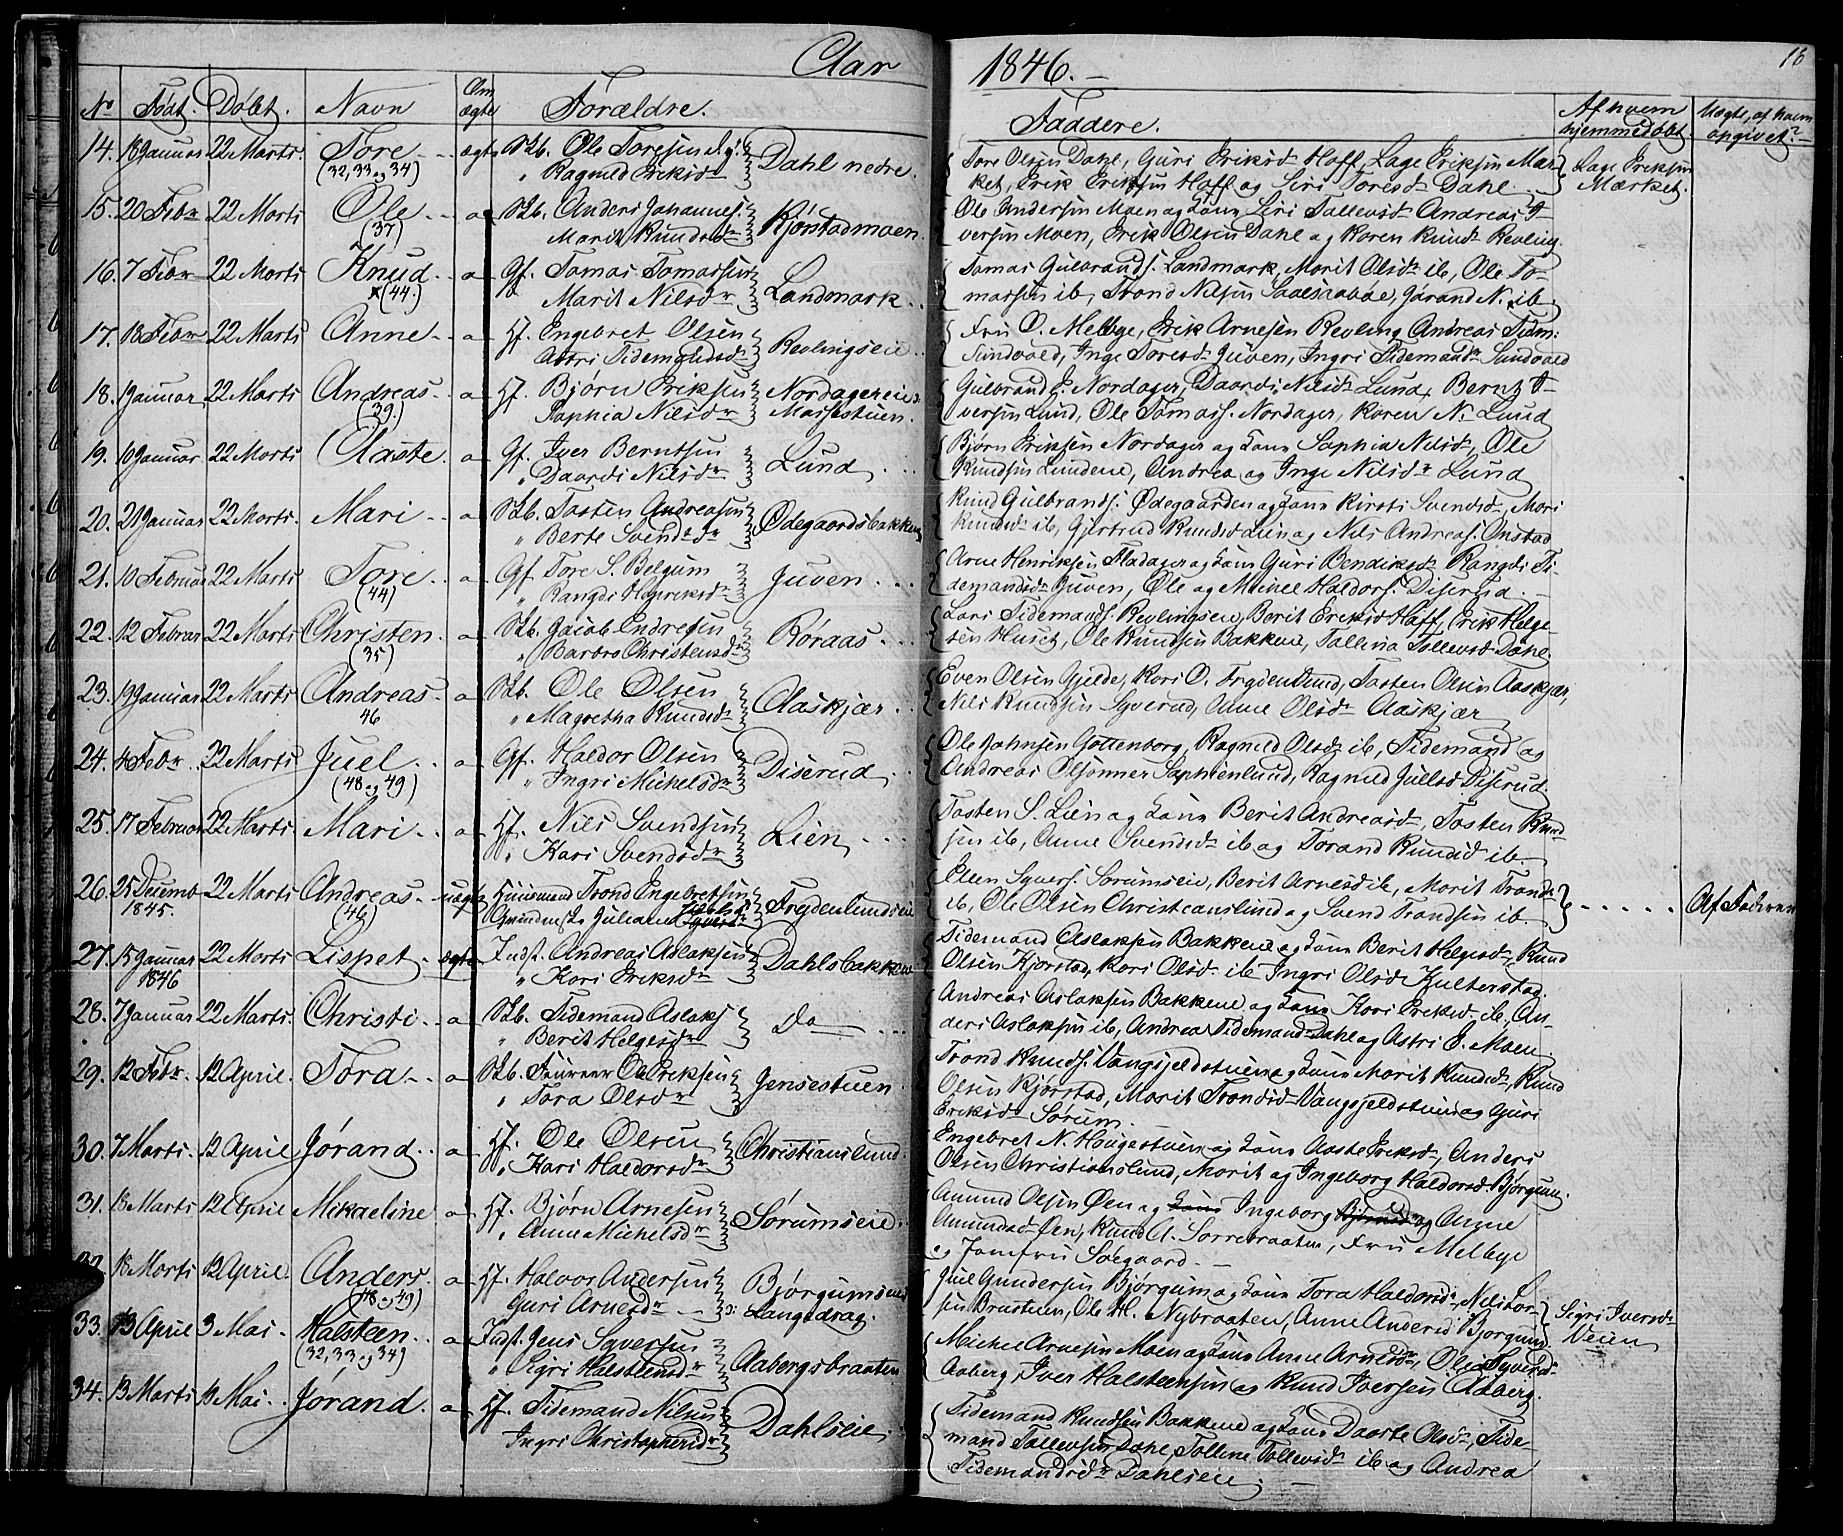 Aar 1846. 18
No Født. Døbt. Navn Om ægte Forældre. Faddere. Af hvem hjemmedøbt Uægte, af hvem opgivet?
14. 18 Januar 22 Marts. Tore ægte Slb. Ole Toresen Dahl nedre. Tore Olsen Dahl, Guri Eriksdr Haff, Lage Eriksen Mær-
(32, 33 og 34) " Ragnild Eriksdr ket, Erik Eriksen Haff og Siri Toresdr Dahl. Lage Eriksen Mærket.
15. 20 Febr 22 Marts Ole a Slb. Anders Johannes. Kjørstadmoen. Ole Andersen Moen og Kone Siri Tollevsdr Andreas I-
(37) Marit Knudsdr versen Moen, Erik Olsen Dahl og Karen Knudsdr Revling.
16. 7 Febr 22 Marts Knud a Gf. Tomas Tomassen Landmark. Tomas Gulbrands. Landmark, Marit Olsdr ib, Ole To-
(44.) Marit Nilsdr massen ib, Trond Nilsen, Jørand N. ib
17. 18 Febr 22 Marts Anne a Hf. Engebret Olsen Revlingseie Fru O. Melbye, Erik Arnesen Revling, Andreas Tidm:
Astri Tidemandsdr Sundvold, Inge Toresdr Juven, Ingri Tidemandsdr Sundvold
18. Januar 22 Marts Andreas a Hf. Bjørn Eriksen Nordagereie Gulbrand E. Nordager, Daardi Nilsdr Lund, Bernt I-
(39.) Sophia Nilsdr Massestuen. versen Lund, Ole Tomass. Nordager, Karen N. Lund
19. 10 Januar 22 Marts Aaste a Gf. Iver Berntsen Lund Bjørn Eriksen Nordager og Kone Sophia Nilsdr, Ole
" Daardi Nilsdr Knudsen Lundene, Andrea og Inge Nilsdr Lund
20. 21 Januar 22 Marts. Mari a Slb. Tosten Andreasen Ødegaardsbakken Knud Gulbrands. Ødegaarden og Kone Kirsti Svendsdr, Mari
" Berte Svendsdr Knudsdr ib, Gjertrud Knudsdr Lien og Nils Andreas. Onstad
21. 10 Februar 22 Marts Tore a Gf. Tore S. Belgum Juven Arne Henriksen Fladager og Kone Guri Bendiksdr Rangdi Ti-
(44) " Rangdi Henriksdr demandsdr Juven, Ole og Mikkel Haldors. Diserud.
22. 12 Februar 22 Marts Christen a Slb. Jacob Endresen Røraas Lars Tidemands. Revlingseie, Berit Eriksdr Haff, Erik Helge-
(35) " Barbro Christensdr sen Huset, Ole Knudsen Bakkene, Tollina Tollevsdr Dahl.
23. 19 Januar 22 Marts Andreas a Slb. Ole Olsen Aaskjær Even Olsen Gjelde, Kari O. Frydenlund, Tosten Olsen Aaskjær,
46 " Magretha Knudsdr Nils Knudsen Syverud, Anne Olsdr Aaskjær
24. 4 Febr 22 Marts Juel a Gf. Haldor Olsen Diserud Ole Johnsen Gottenborg, Ragnild Olsdr ib, Tidemand og
(48 og 49) " Ingri Mikelsdr Andreas Olsønner Sophienlund, Ragnild Juelsdr Diserud.
25. 17 Februar 22 Marts Mari a Hf. Nils Svendsen Lien Tosten S. Lien og Kone Berit Andreasdr, Tosten Knud-
" Kari Svendsdr sen ib, Anne Svendsdr ib og Torand Knudsdr ib
26. 25 Decemb 22 Marts Andreas uægte Huusmand Trond Engebretsen Frydenlundseie Ellen Syvers. Sørumseie, Berit Arnesdr ib, Marit Trondsdr
1845. (46) Juliane ib, Ole Olsen Christianslund og Svend Trondsen ib Af Faderen
27. 15 Januar 22 Marts Lispet ægte Indst. Andreas Aslaksen Dahlsbakken Tidemand Aslaksen Bakkene og Kone Berit Helgesdr, Knud
1846 " Kari Eriksdr Olsen Kjørstad, Kari Olsdr ib Ingri Olsdr Hulterstad.
28. 7 Januar 22 Marts. Christi a Slb. Tidemand Aslaks Do Andreas Aslaksen Bakkene og Kone Kari Eriksdr ib, An-
" Berit Helgesdr ders Aslaksen ib, Andrea Tidemandsdr Dahl og Astri E. Moen
29. 12 Febr. 12 April. Tora a Slb. Ole Eriksen Jensestuen Trond Knuds. Vangsjeldstuen og Kone Marit Knudsdr, Knud
" Tora Olsdr Olsen Kjørstad, Marit Trondsdr Vangsjeldstuen og Guri
Eriksdr Sørum.
30. 7 Marts. 12 April Jørand a Hf. Ole Olsen Christianslund Engebret N. Haugestuen og Kone Aaste Eriksdr, Anders
" Kari Haldorsdr Olsen Christianslund, Marit og Ingeborg Haldorsdr Bjørgum.
31. 13 Marts 12 April Mikaeline a Hf. Bjørn Arnesen Sørumseie. Amund Olsen Øen og Kone Ingeborg og Anne
" Anne Michelsdr Amundsdr Øen, Knud A. Sorrebraaten, Fru Melbye
og Jomfru Søegaard.
32. 18 Marts 12 April. Anders a Hf. Halvor Andersen Bjørgumseie Juel Gundersen Bjørgum og Kone Tora Haldorsdr, Nils Lar-
(48 og 49) Guri Arnesdr Langedrag. sen Brustuen, Ole H. Nybraaten, Anne Andersdr Bjørgum Sigri Iversdr Veien
33. 13 April 3 Mai. Halsteen a Indst. Jens Syversen Aabergsbraaten Michel Arnesen Moen og Kone Anne Arnesdr, Olia Syversdr
(32, 33 og 34) " Sigri Halsteensdr Aaberg, Iver Halsteensen og Knud Iversen Aaberg.
34. 13 Marts Mai. Jørand a Hf. Tidemand Nilsen Dahlseie Tidemand Knudsen Bakkene og Kone Daarte Olsdr, Tide-
Ingri Christophersdr mand Tollevsen Dahl, Tolline Tollevsdr ib og Andrea
Tidemandsdr Dahlseie